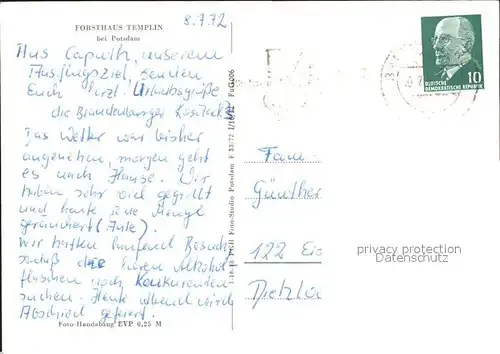 FORSTHAUS TEMPLIN
bei Potsdam
8.7.72
Aus Caputh, unserem
Ausflugsziel, senden
Euch herzl. Urlaubsgrüße
die Brandenburger
Das Wetter war bisher
angenehm, morgen geht
es nach Hause. Wir
haben sehr viel gegrillt
und heute jede Menge
geräuchert (Aale).
Wir hatten laufend Besuch
daß die leeren Alkohol
flaschen nach Konkurrenten
suchen. Heute abend wird
Abschied gefeiert.
Foto-Handabzug EVP 0,25 M
I-18-18 PGH Foto-Studio Potsdam F 53/72 I/16/12 FuG 006
10
DEUTSCHE
DEMOKRATISCHE REPUBLIK
Fam.
Günther
122 Eis
Diehlo
privacy protection
Datenschutz